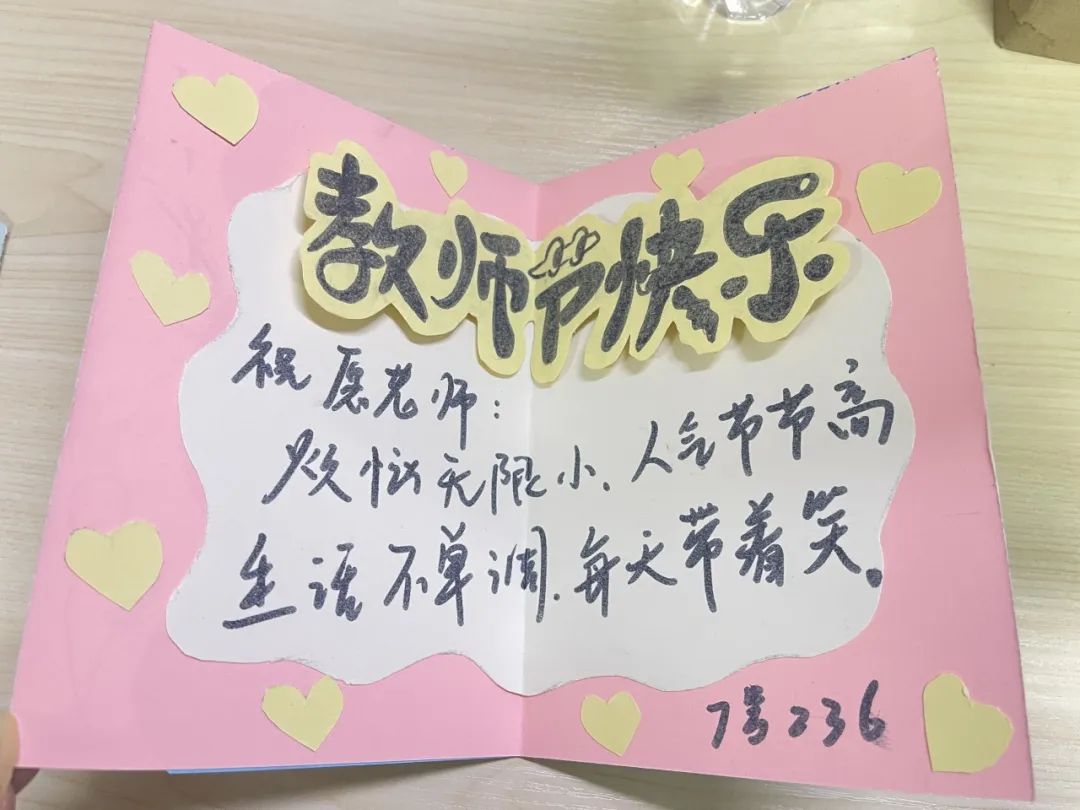 教师节快乐
祝愿老师:
烦恼无限小、人气节节高
生活不单调、每天带着笑。
7青236